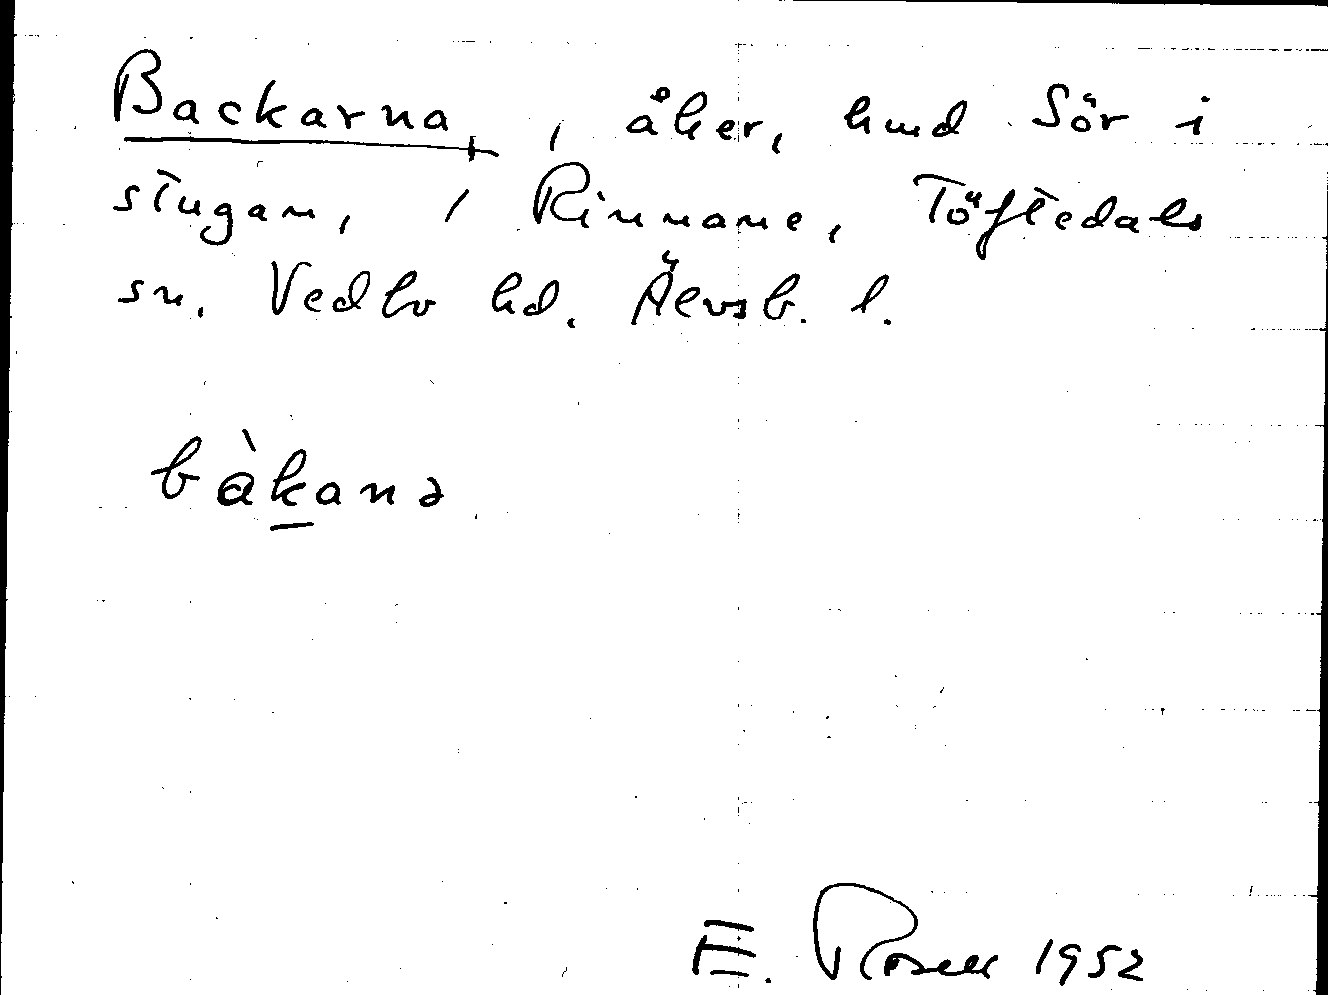 Backarna, åker, hmd Sör i
stugan, / Rinnane, Töftedals
sn. Vedbo hd. Älvsb. l.
bàkanə
E. Rosell 1952